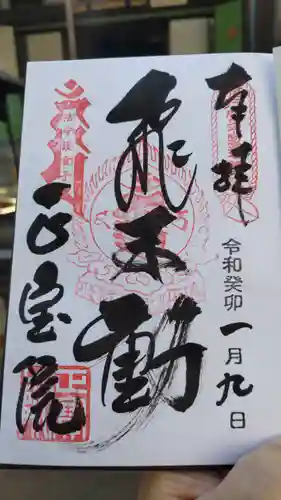 奉拝
令和癸卯一月九日
飛不動
正宝院